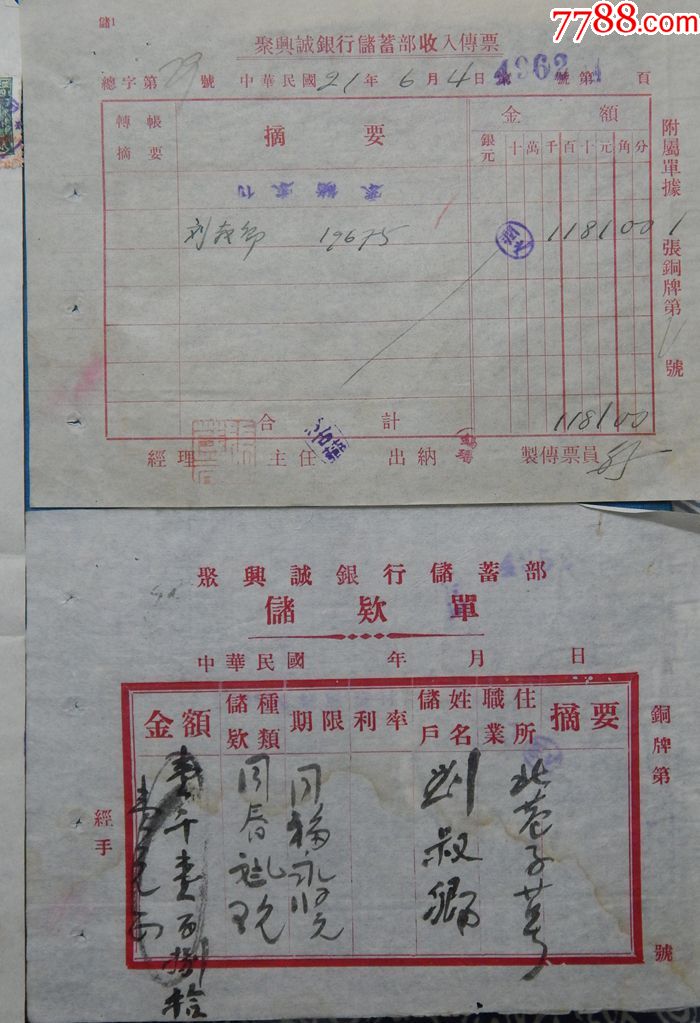 7788.com
儲1
聚興誠銀行儲蓄部收入傳票
總字第29號 中華民國21年6月4日 4962 號第1頁
轉帳摘要 摘要 金額
銀元 十萬千百十元角分
19675 118100
合計 118100
附屬單據1張銅牌第 號
經理 主任 出納 製傳票員
聚興誠銀行儲蓄部
儲欵單
中華民國 年 月 日
金額 儲欵種類 期限 利率 儲戶姓名 職業 住所 摘要
劉叔卿
壹千壹百捌拾
銅牌第 號
經手